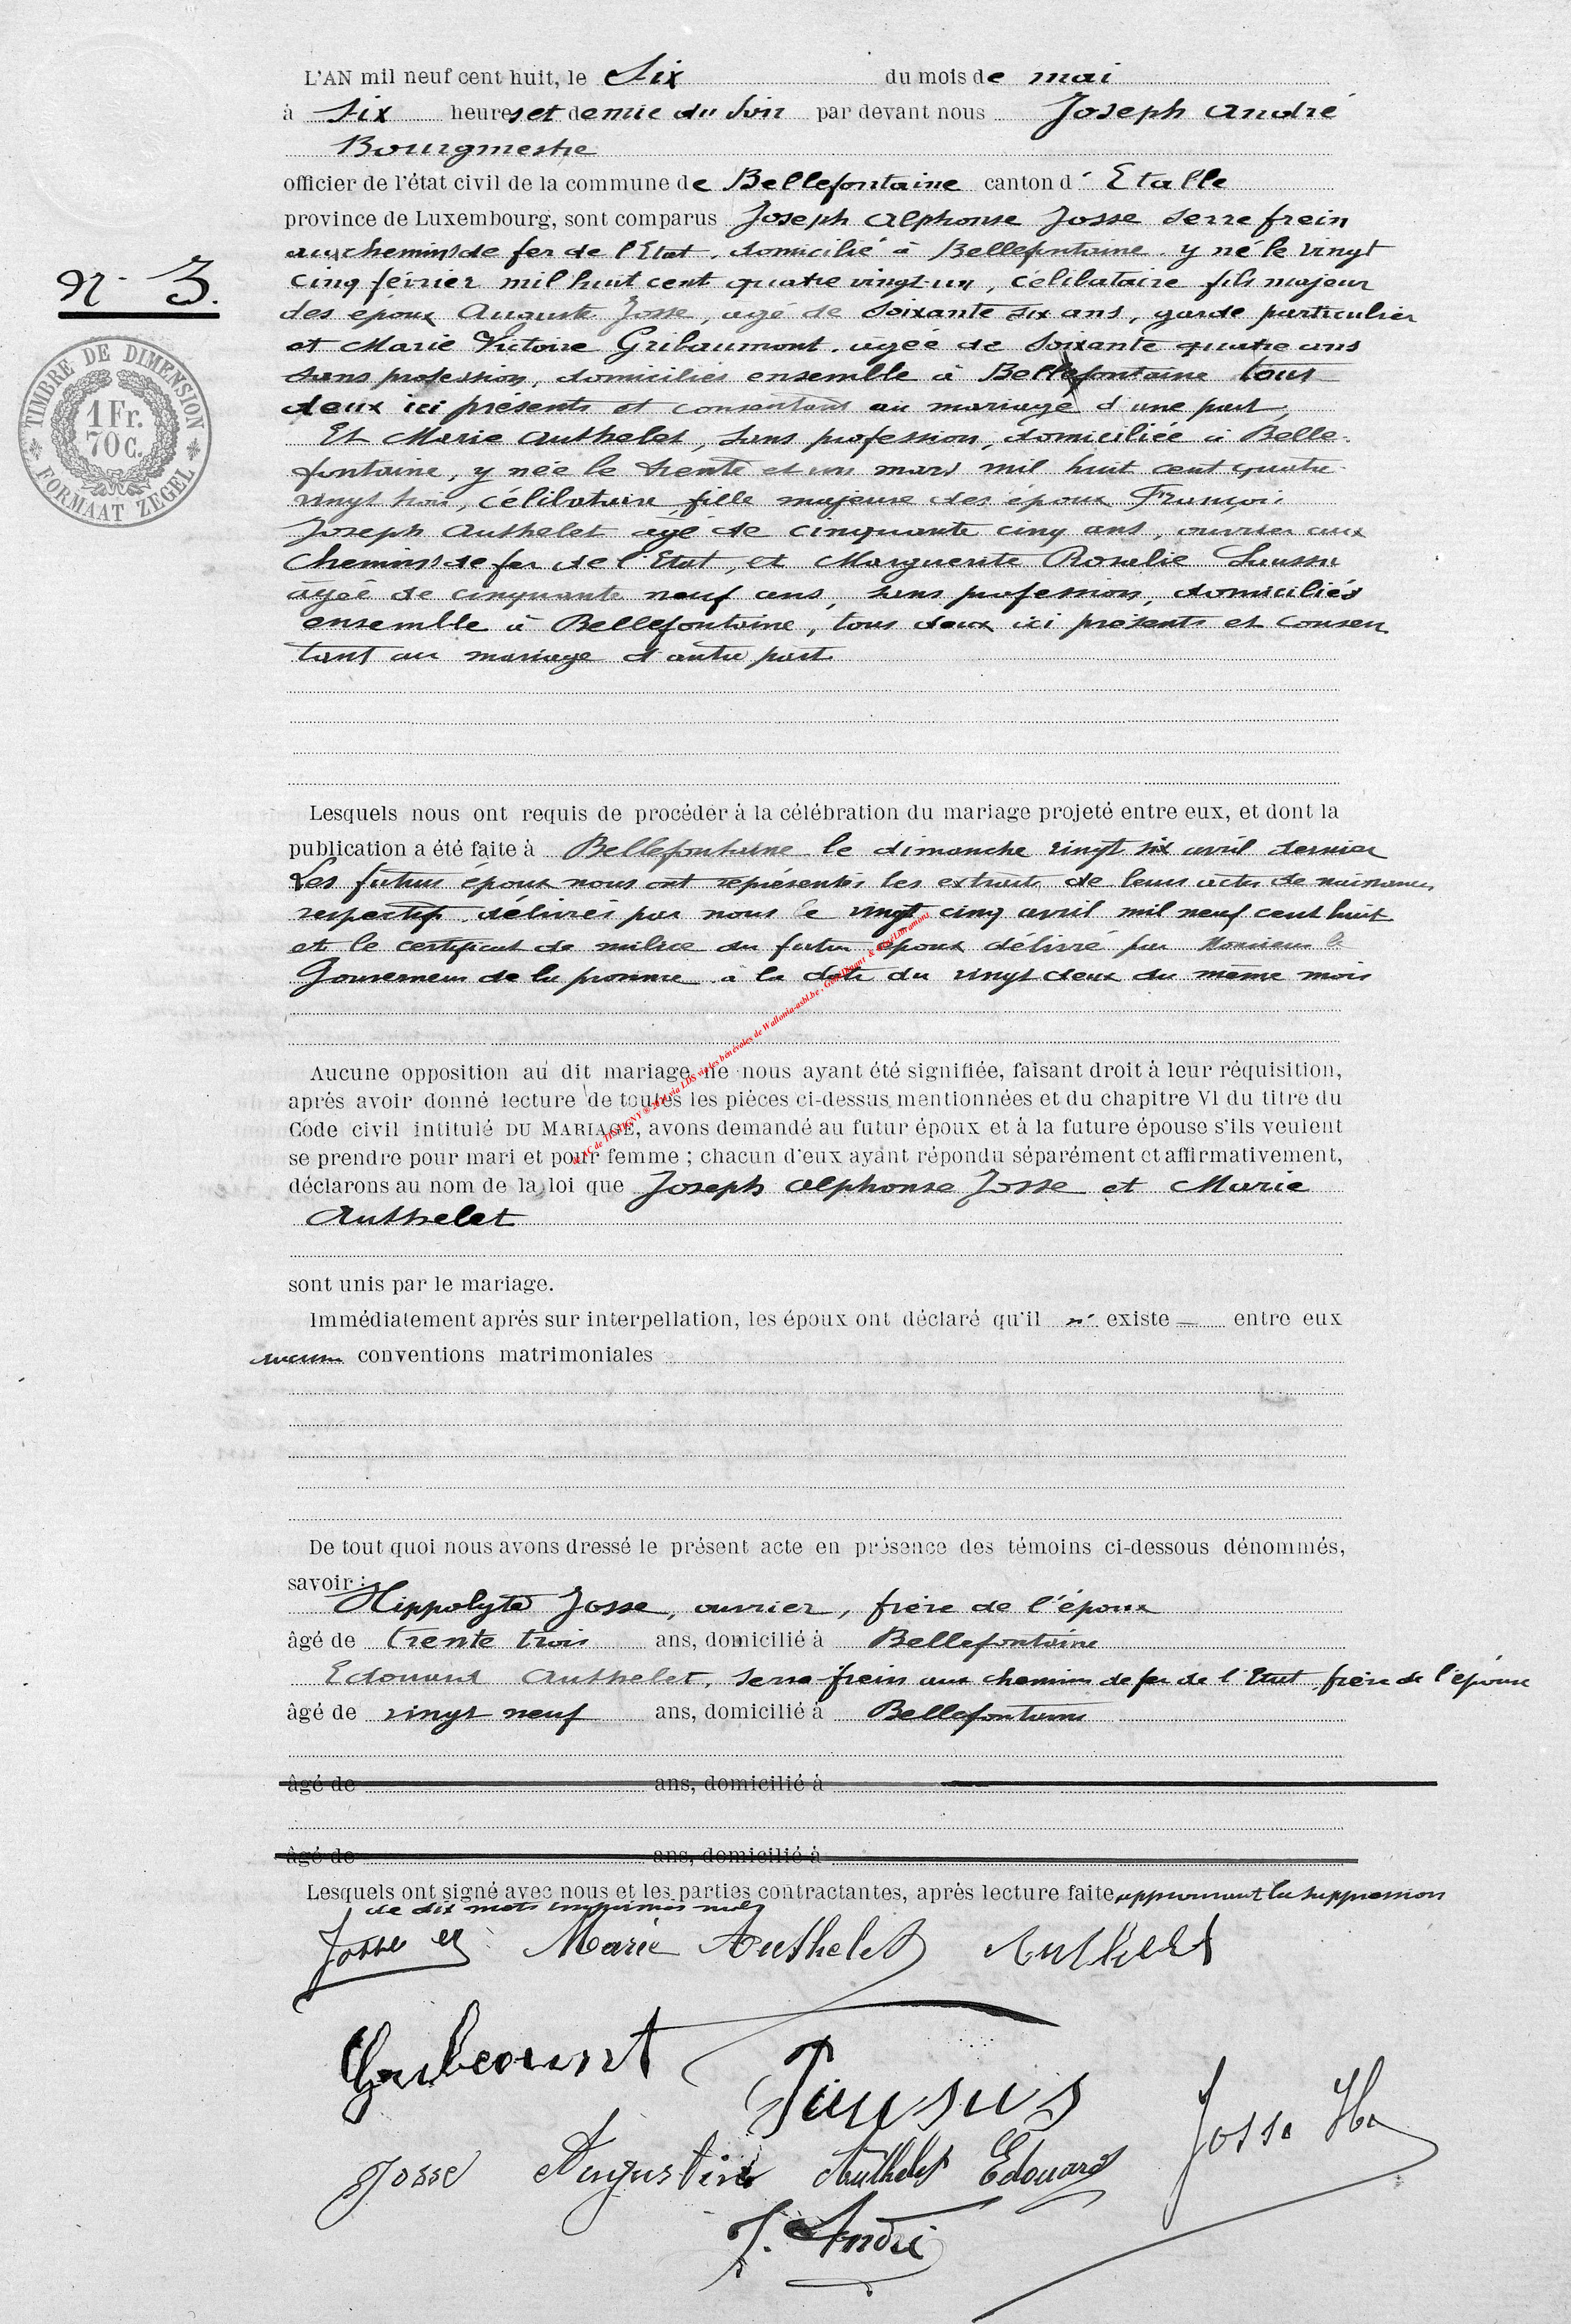 L'AN mil neuf cent huit, le Six du mois de mai
à Six heures et demie du Soir par devant nous Joseph André
Bourgmestre
officier de l'état civil de la commune de Bellefontaine canton d' Etalle
province de Luxembourg, sont comparus Joseph Alphonse Josse serre frein
aux chemins de fer de l'Etat, domicilié à Bellefontaine y né le vingt
cinq février mil huit cent quatre vingt-un, célibataire fils majeur
N° 3.
des époux Auguste Josse, agé de soixante six ans, garde particulier
et Marie Victoire Gribaumont, agée de soixante quatre ans
sans profession, domiciliés ensemble à Bellefontaine tous
TIMBRE DE DIMENSION
1 Fr.
70 c.
FORMAAT ZEGEL
deux ici présents et consentant au mariage d'une part,
Et Marie Authelet, sans profession, domiciliée à Belle-
fontaine, y née le trente et un mars mil huit cent quatre
vingt trois, célibataire fille majeure des époux François
Joseph Authelet agé de cinquante cinq ans, ouvrier aux
chemins de fer de l'Etat, et Marguerite Rosalie
agée de cinquante neuf ans, sans profession, domiciliés
ensemble à Bellefontaine, tous deux ici présents et consen
tant au mariage d'autre part
Lesquels nous ont requis de procéder à la célébration du mariage projeté entre eux, et dont la
publication a été faite à Bellefontaine le dimanche vingt six avril dernier
Les futurs époux nous ont représentés les extraits de leurs actes de naissances
respectifs délivrés par nous le vingt cinq avril mil neuf cent huit
et le certificat de milice du futur époux délivré par Monsieur le
Gouverneur de la province à la date du vingt deux du même mois
Aucune opposition au dit mariage ne nous ayant été signifiée, faisant droit à leur réquisition,
après avoir donné lecture de toutes les pièces ci-dessus mentionnées et du chapitre VI du titre du
Code civil intitulé DU MARIAGE, avons demandé au futur époux et à la future épouse s'ils veulent
se prendre pour mari et pour femme ; chacun d'eux ayant répondu séparément et affirmativement,
déclarons au nom de la loi que Joseph Alphonse Josse et Marie
Authelet
sont unis par le mariage.
Immédiatement après sur interpellation, les époux ont déclaré qu'il n' existe — entre eux
aucune conventions matrimoniales
De tout quoi nous avons dressé le présent acte en présence des témoins ci-dessous dénommés,
savoir :
Hippolyte Josse, ouvrier, frère de l'époux
âgé de trente trois ans, domicilié à Bellefontaine
Edouard Authelet, serre-frein aux chemins de fer de l'Etat, frère de l'épouse
âgé de vingt neuf ans, domicilié à Bellefontaine
âgé de ans, domicilié à
âgé de ans, domicilié à
Lesquels ont signé avec nous et les parties contractantes, après lecture faite approuvant la suppression
de dix mots imprimés nuls
Josse Marie Authelet Authelet
Josse Augustin Authelet Edouard Josse
J. André